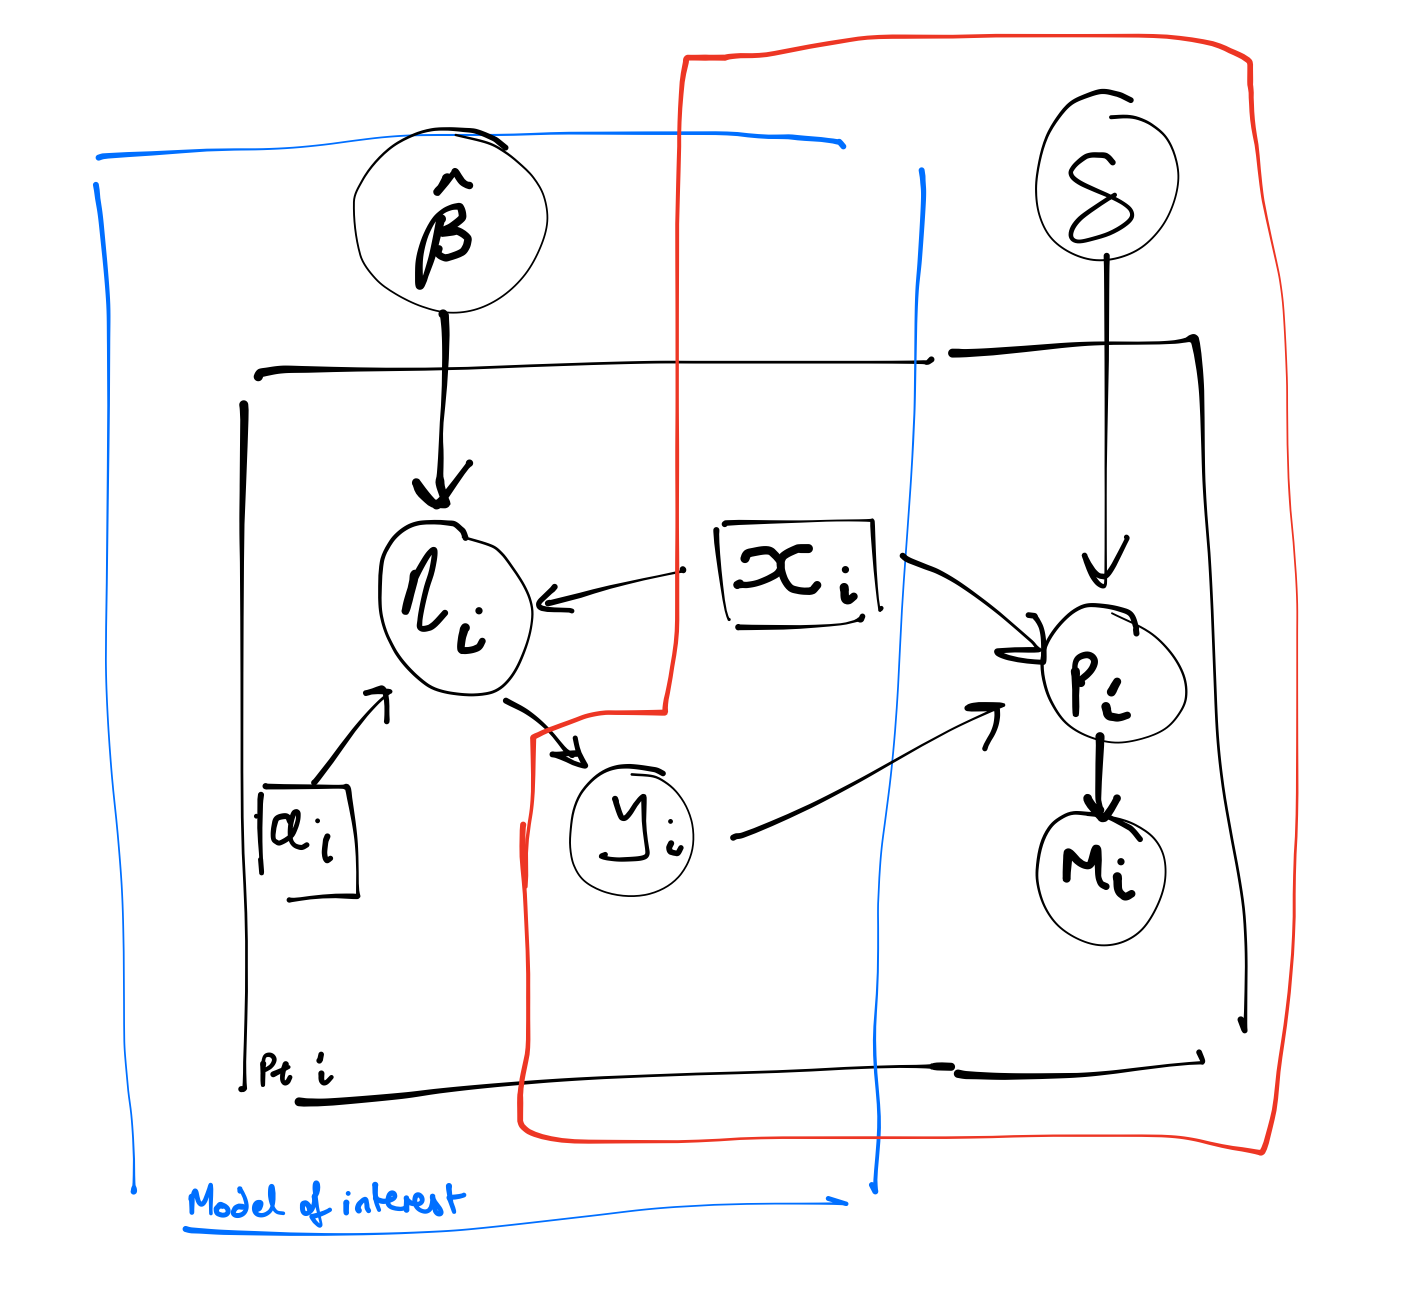 β̂
δ
ηi
xi
pi
ai
yi
Mi
Pt i
Model of interest